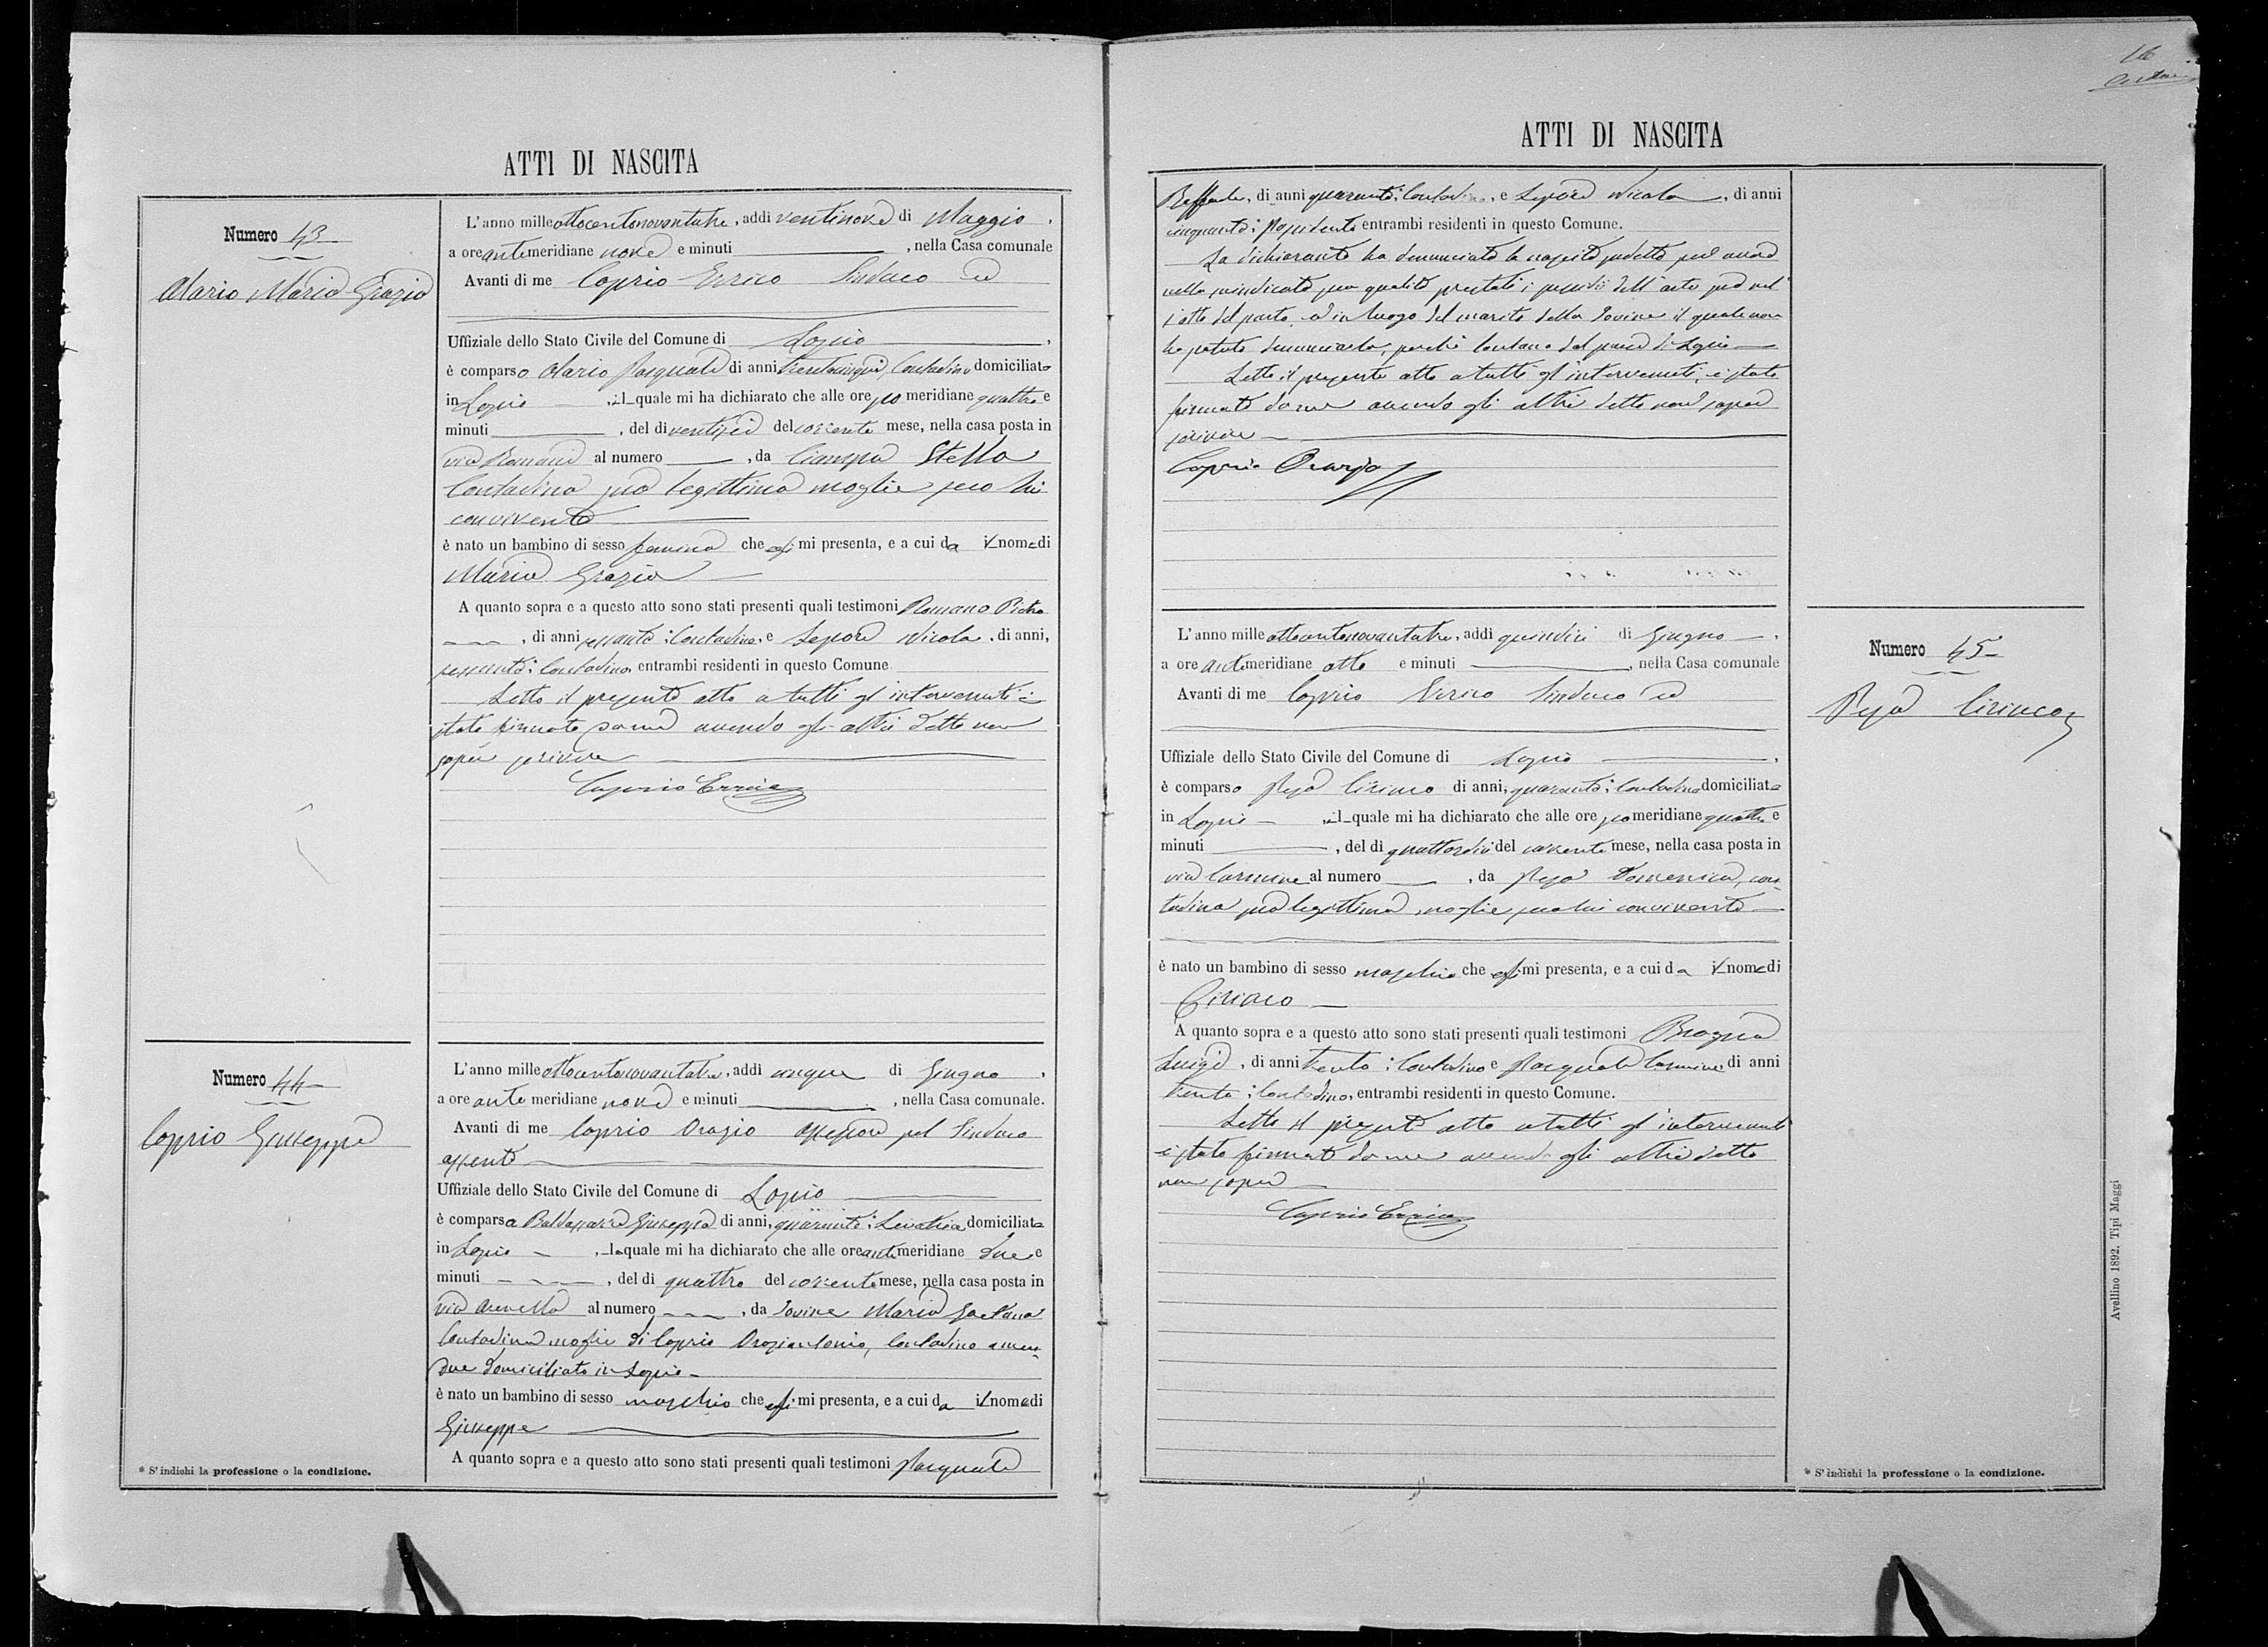 ATTI DI NASCITA
Numero 43
Alario Maria Grazia
L'anno milleottocentonovantatre, addi ventinove di Maggio,
a ore antimeridiane nove e minuti , nella Casa comunale
Avanti di me Caprio Errico Sindaco ed
Uffiziale dello Stato Civile del Comune di Lapio,
è comparso Alario Pasquale di anni trentacinque, Contadino domiciliato
in Lapio , il quale mi ha dichiarato che alle ore po meridiane quattro e
minuti , del dì ventisei del corrente mese, nella casa posta in
via Romano al numero , da Ciampa Stella
Contadina sua legittima moglie seco lui
convivente
è nato un bambino di sesso femina che essi mi presenta, e a cui da il nome di
Maria Grazia
A quanto sopra e a questo atto sono stati presenti quali testimoni Romano Pietro
, di anni sessanta: Contadino, e Sepore Nicola, di anni,
sessanta: Contadino, entrambi residenti in questo Comune.
Letto il presente atto a tutti gl'intervenuti è
stato firmato da me avendo gli altri detto non
saper scrivere
Caprio Errico
Numero 44
Caprio Giuseppe
L'anno milleottocentonovantatre, addi cinque di Giugno,
a ore ante meridiane nove e minuti , nella Casa comunale.
Avanti di me Caprio Orazio assessore pel Sindaco
assente
Uffiziale dello Stato Civile del Comune di Lapio
è comparsa Baldassarre Giuseppa di anni, quaranta: Levatrice domiciliata
in Lapio , la quale mi ha dichiarato che alle ore antimeridiane due e
minuti , del dì quattro del corrente mese, nella casa posta in
via al numero , da Iovine Maria Gaetana
Contadina moglie di Caprio Oraziantonio, Contadino amen-
due domiciliato in Lapio
è nato un bambino di sesso maschio che essi mi presenta, e a cui da il nome di
Giuseppe
A quanto sopra e a questo atto sono stati presenti quali testimoni Pasquale
* S'indichi la professione o la condizione.
16
ATTI DI NASCITA
Raffaele, di anni quaranta: Contadino, e Sepore Nicola, di anni
cinquanta: Possidente entrambi residenti in questo Comune.
La dichiarante ha denunciato la nascita sudetta per avere
nella sua qualità prestato i sussidii dell'arte sua nel
l'atto del parto, ed in luogo del marito della Iovine il quale non
ha potuto denunciarla, perché lontano dal paese di Lapio
Letto il presente atto a tutti gl'intervenuti, è stato
firmato da me avendo gli altri detto non saper
scrivere
Caprio Orazio
L'anno milleottocentonovantatre, addi quindici di Giugno,
a ore antimeridiane otto e minuti , nella Casa comunale
Avanti di me Caprio Errico Sindaco ed
Uffiziale dello Stato Civile del Comune di Lapio,
è comparso Ciriaco di anni, quaranta: Contadino domiciliato
in Lapio , il quale mi ha dichiarato che alle ore po meridiane quattro e
minuti , del dì quattordici del corrente mese, nella casa posta in
via Carmine al numero , da Domenica, con-
tadina sua legittima moglie seco lui convivente
è nato un bambino di sesso maschio che essi mi presenta, e a cui da il nome di
Ciriaco
A quanto sopra e a questo atto sono stati presenti quali testimoni
Luigi, di anni trenta: Contadino e Pasquale Carmine di anni
trenta: Contadino, entrambi residenti in questo Comune.
Letto il presente atto a tutti gl'intervenuti
è stato firmato da me avendo gli altri detto
non saper
Caprio Errico
Numero 45
Ciriaco
* S'indichi la professione o la condizione.
Avellino 1892. Tipi Maggi